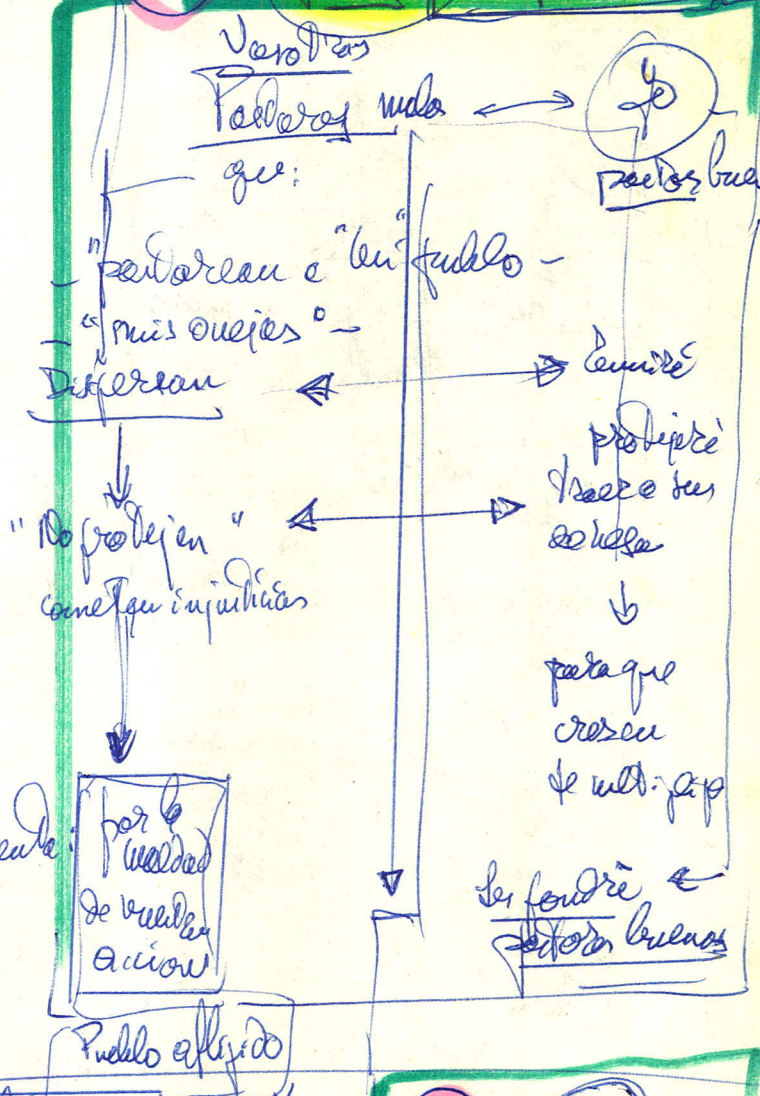 Vosotros
Pastores malos
Yo
que:
pastor bue
- "pastorean a "mi" pueblo -
- "mis ovejas" -
Dispersan
reuniré
protegeré
traeré a sus
dehesas
"No protejen"
cometen injusticias
para que
crescan
se multipliq
enta:
por la
maldad
de vuestras
accion
les pondré
pastores buenos
Pueblo afligido